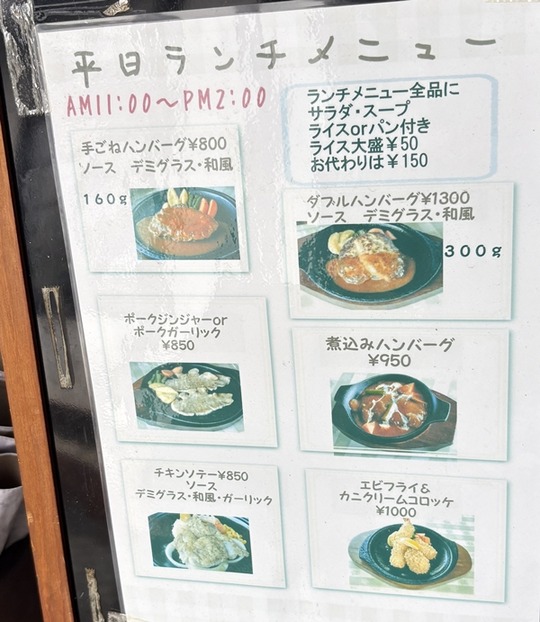 平日ランチメニュー
AM11:00～PM2:00
ランチメニュー全品に
サラダ・スープ
ライスorパン付き
ライス大盛¥50
お代わりは¥150
手ごねハンバーグ¥800
ソース デミグラス・和風
160g
ダブルハンバーグ¥1300
ソース デミグラス・和風
300g
ポークジンジャーor
ポークガーリック
¥850
煮込みハンバーグ
¥950
チキンソテー¥850
ソース
デミグラス・和風・ガーリック
エビフライ&
カニクリームコロッケ
¥1000